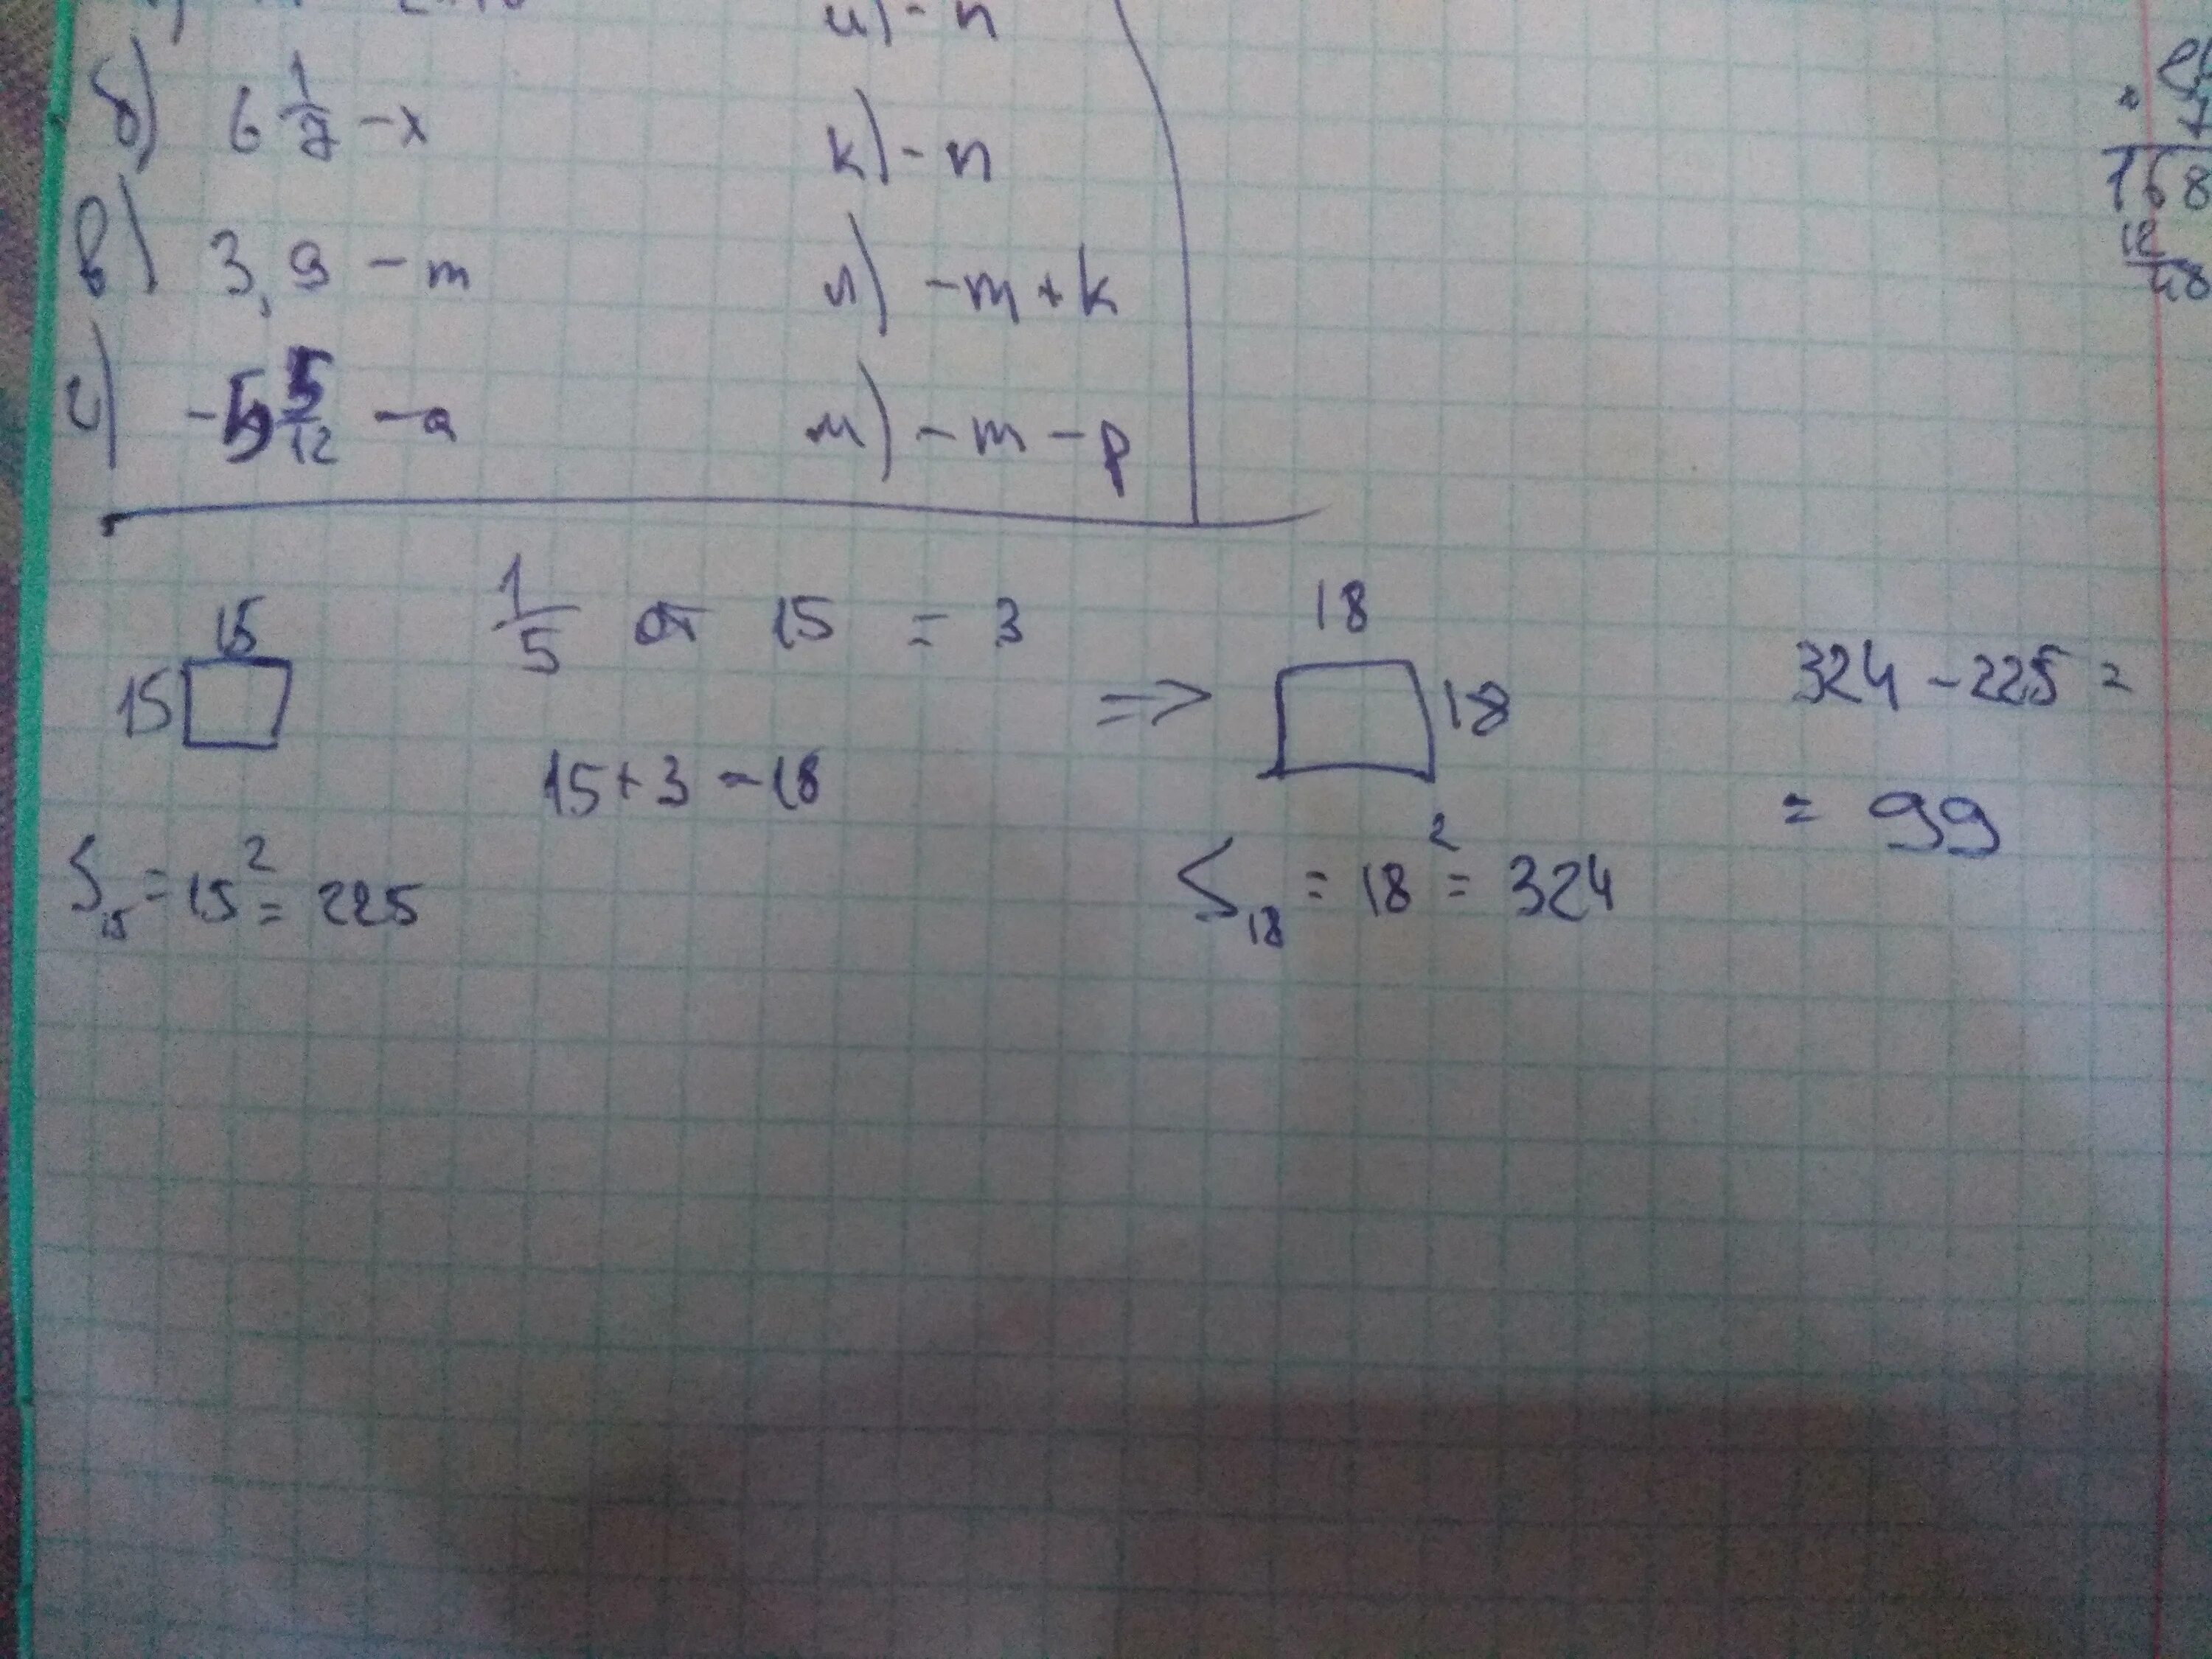 и) - n
б) 6 1/7 - x
к) - n
в) 3,9 - m
л) - m + k
г) -5 5/12 - a
м) - m - p
168
12
48
15
15
1/5 от 15 = 3
15 + 3 = 18
S15 = 15² = 225
=>
18
18
S18 = 18² = 324
324 - 225 =
= 99